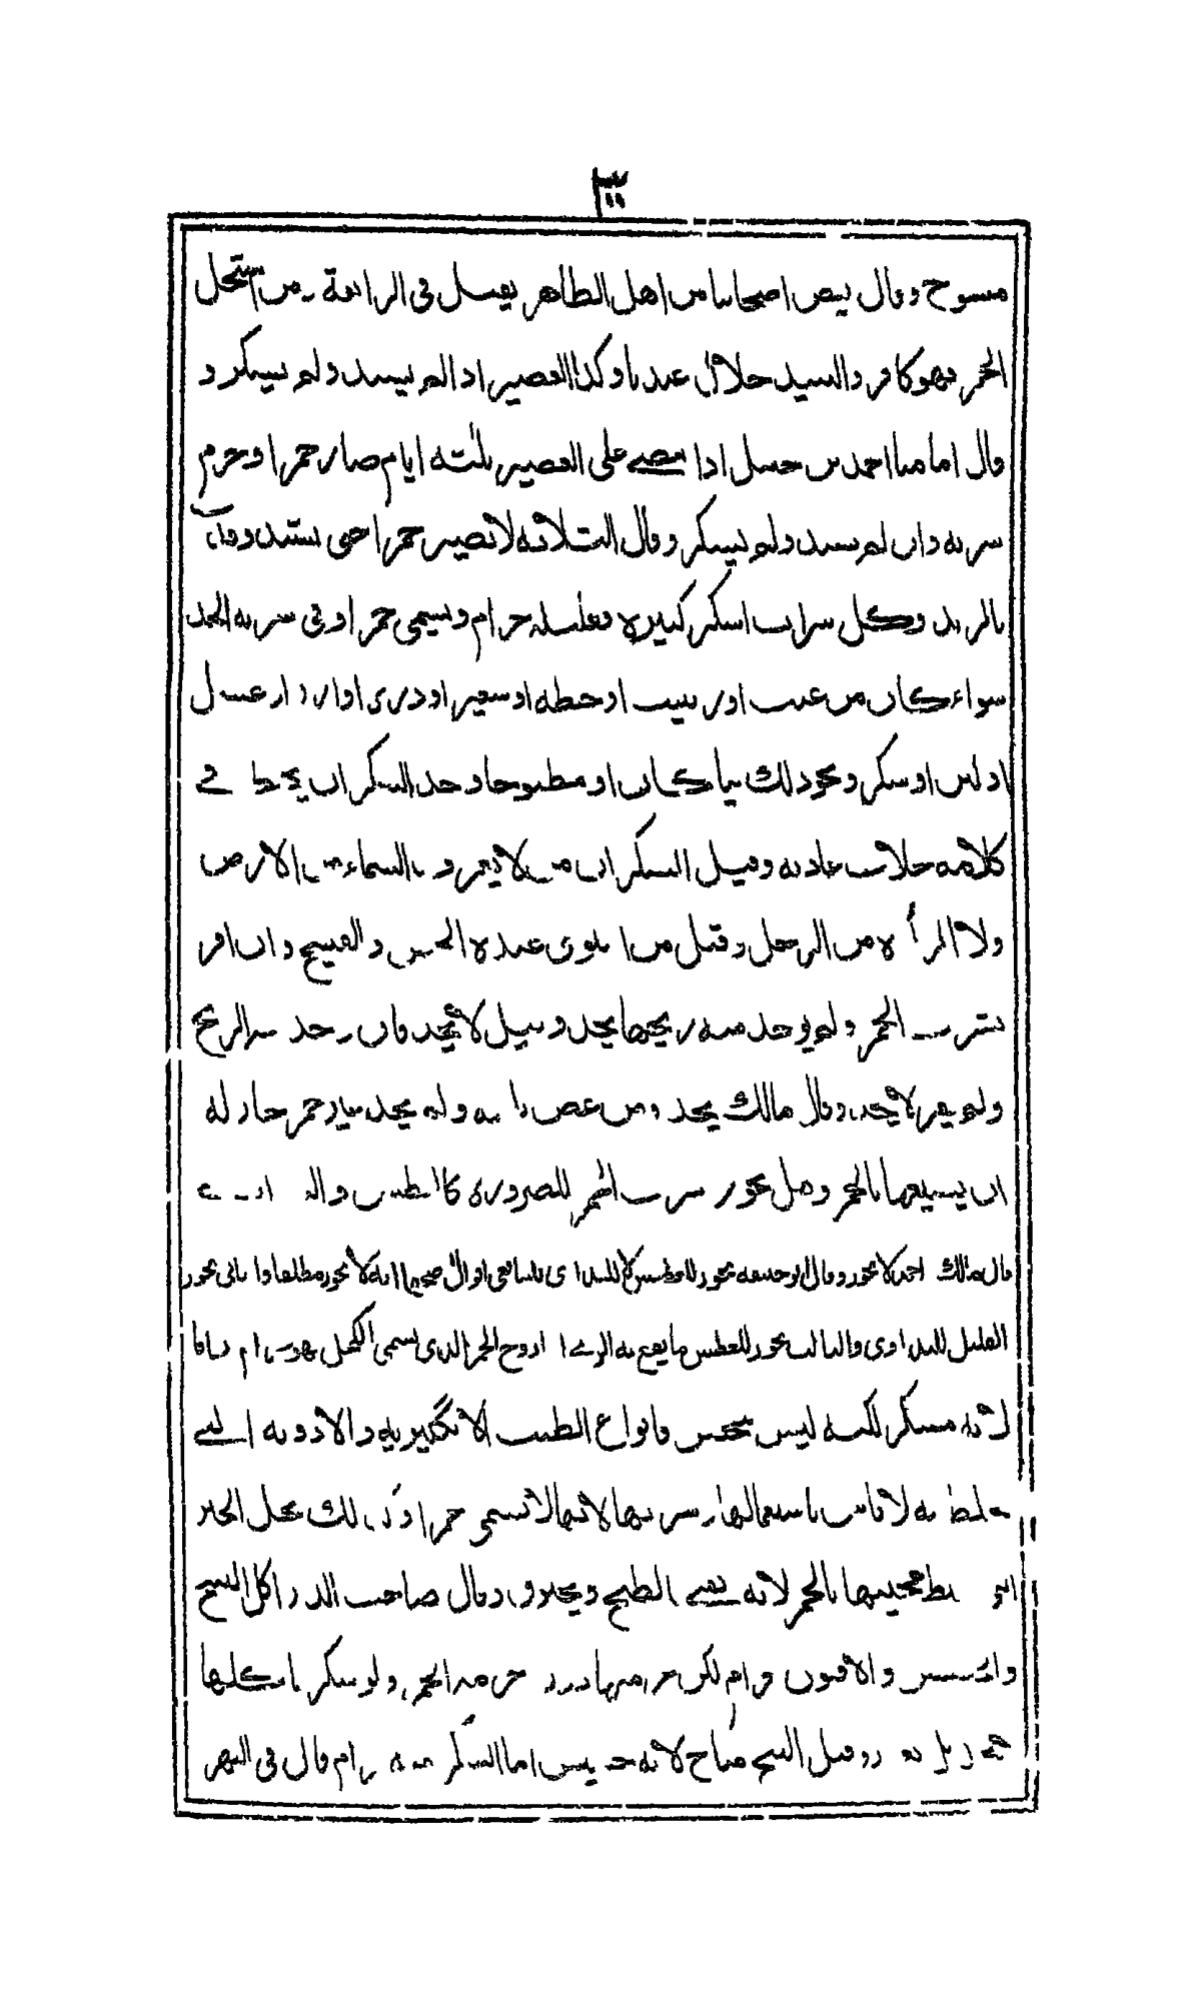 منسوخ وقال بعض اصحابنا من اهل الظاهر يقتل في الرابعة ومن استحل
الخمر فهو كافر والنبيذ حلال عندنا وكذا العصير اذا لم يشتد ولم يسكر و
قال امامنا احمد بن حنبل اذا مضى على العصير ثلثة ايام صار خمرا وحرم
شربه وان لم يشتد ولم يسكر وقال الثلاثة لا تصير خمرا حتى يشتد وقذف
بالزبد وكل شراب اسكر كثيره فقليله حرام ويسمى خمرا وفي شربه الحد
سواء كان من عنب او زبيب او حنطة او شعير او ذرة او ارز او عسل
او لبن او سكر ونحو ذلك نيا كان او مطبوخا وحد السكران يخلط في
كلامه خلاف عادته وقيل السكران من لا يعرف السماء من الارض
ولا المرأة من الرجل وقيل من استوى عنده الحسن والقبيح وان اقر
بشرب الخمر ولم يوجد منه ريحها يحد وقيل لا يحد فان وجد منه الريح
ولم يقر لا يحد وقال مالك يحد ومن غص ولم يجد غير خمر جاز له
ان يسيغها بالخمر وهل يجوز شرب الخمر للضرورة كالعطش
قال مالك احمد لا يجوز وقال ابو حنيفة يجوز للعطش لا للتداوي وللشافعي اقوال اصحها انه لا يجوز مطلقا والثاني يجوز
القليل للتداوي والثالث يجوز للعطش ما يقع به الري اما روح الخمر الذي يسمى الكحل فهو حرام
لانه مسكر لكنه ليس بنجس فانواع الطيب الانگيريه والادوية التي
يخلط به لا باس باستعمالها وشربها لانها لا تسمى خمرا وكذلك يحل الخبز
الذي يخلط عجينها بالخمر لانه يفنى الطبخ ويحترق وقال صاحب الدر اكل البنج
والحشيش والافيون حرام لكن حرمتها دون حرمة الخمر ولو سكر باكلها
وقيل البنج مباح لانه حشيش اما السكر منه حرام قال في النهر